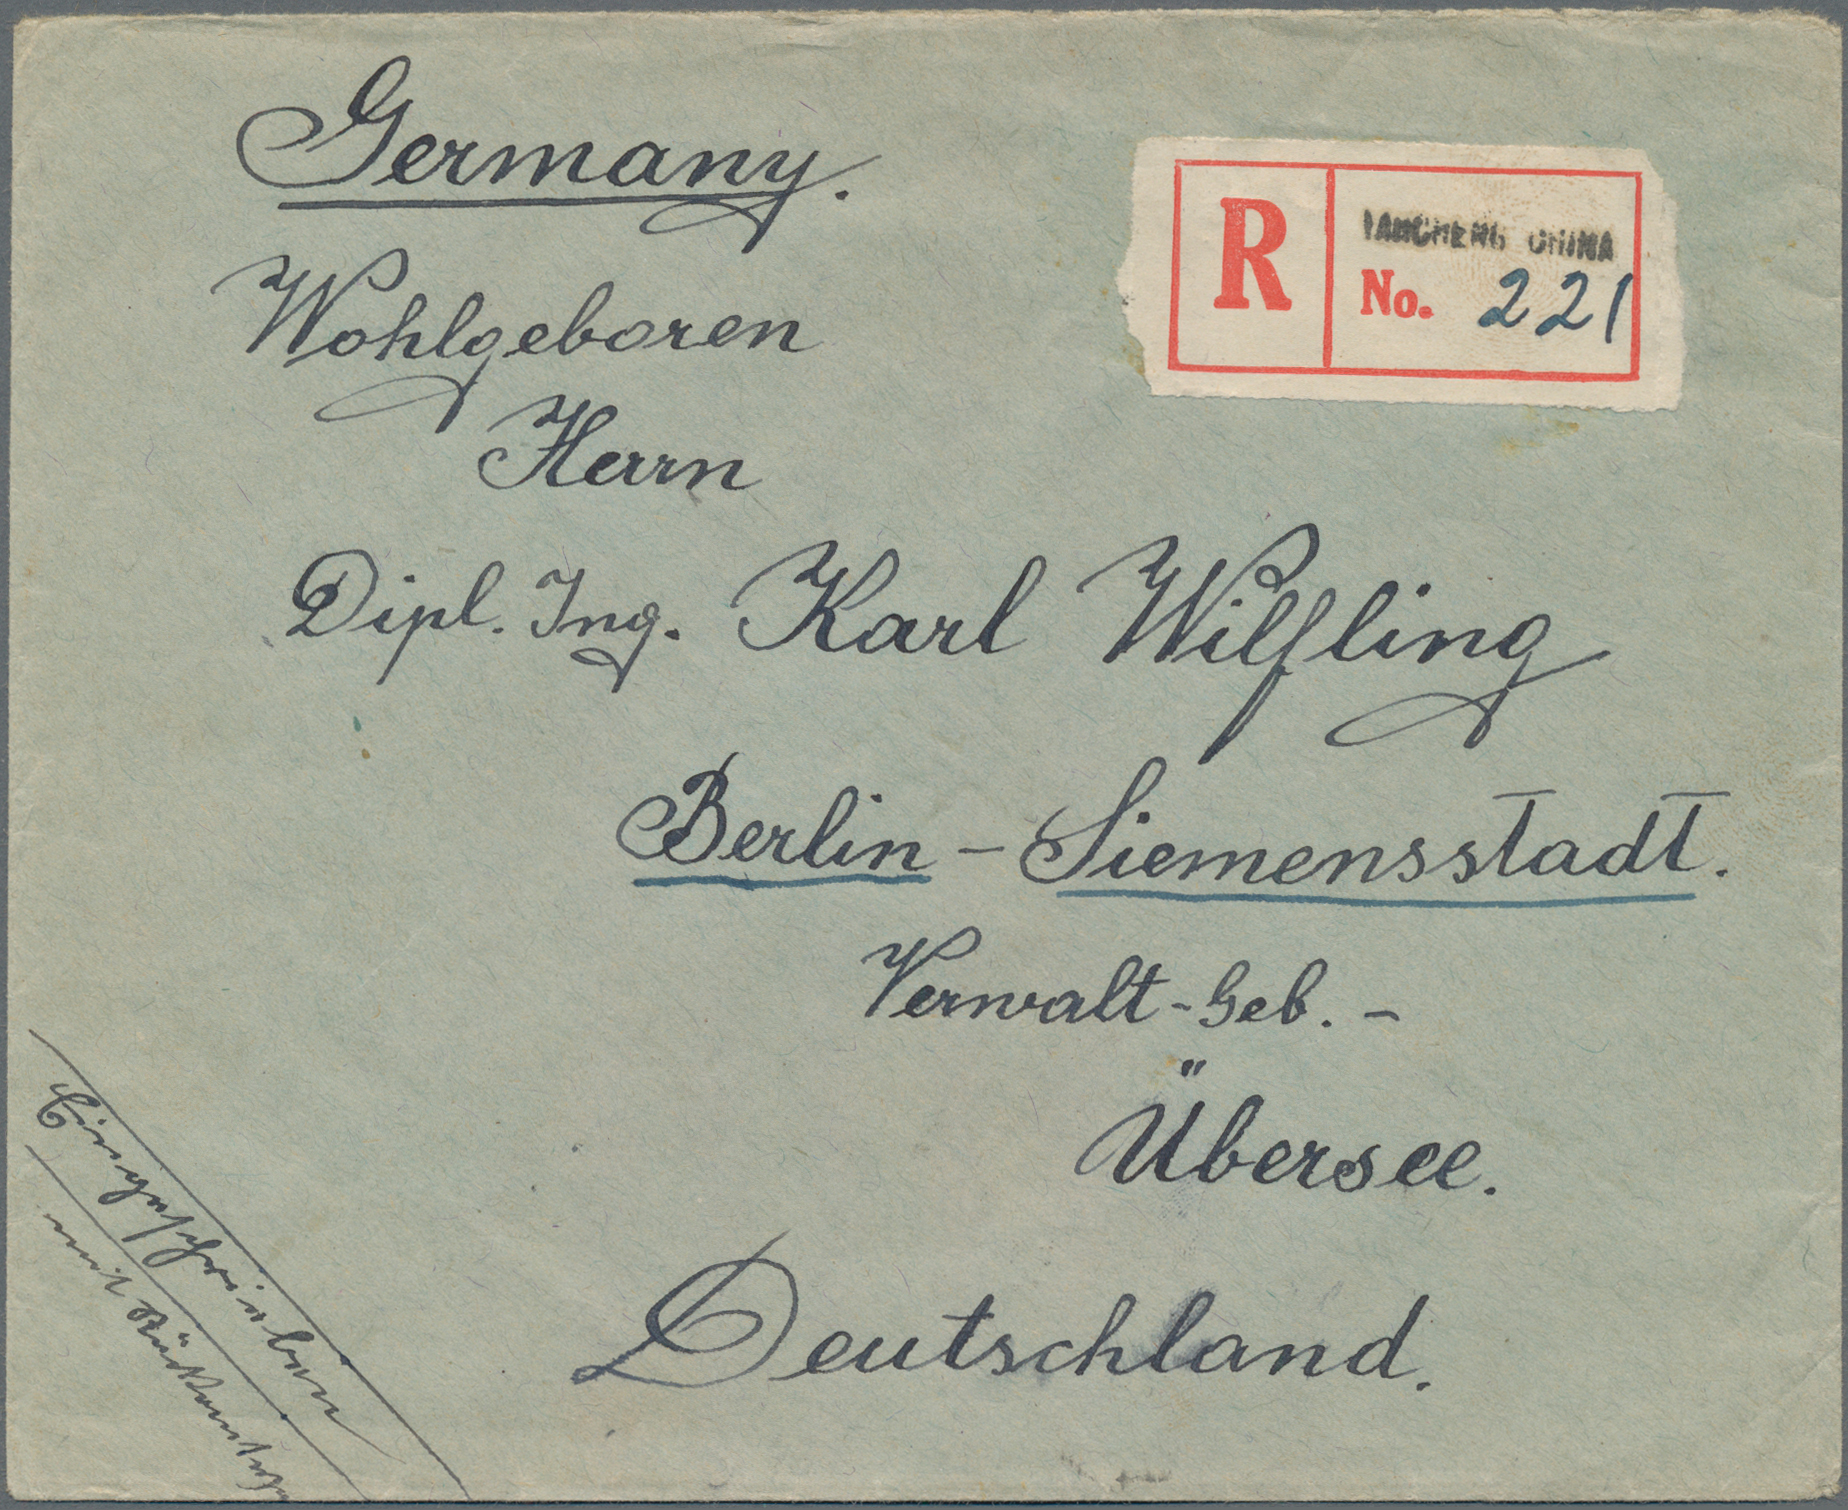 Germany.
R
TANCHENG CHINA
No. 221
Wohlgeboren
Herrn
Dipl. Ing. Karl Wilfling
Berlin - Siemensstadt.
Verwalt-Geb. -
Übersee.
Deutschland.
Eingeschrieben
mit Rückantwort